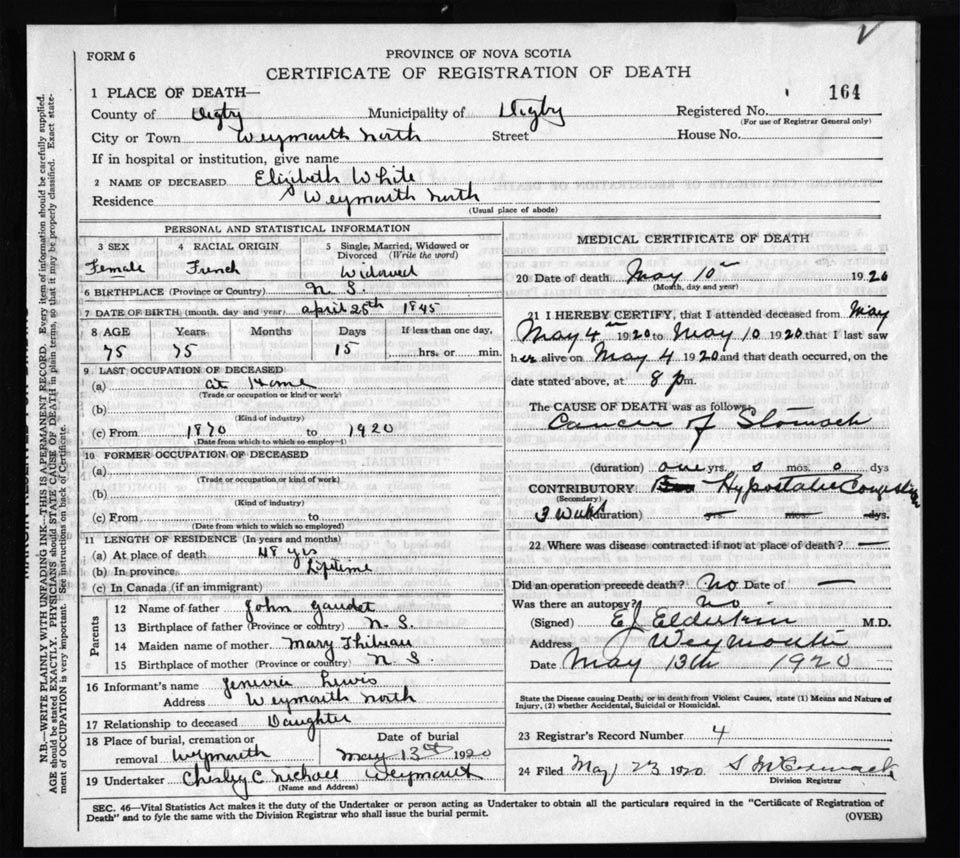 FORM 6
PROVINCE OF NOVA SCOTIA
CERTIFICATE OF REGISTRATION OF DEATH
164
1 PLACE OF DEATH—
County of Digby Municipality of Digby Registered No.
(For use of Registrar General only)
City or Town Weymouth North Street House No.
If in hospital or institution, give name
2 NAME OF DECEASED Elizabeth White
Residence Weymouth North
(Usual place of abode)
PERSONAL AND STATISTICAL INFORMATION
3 SEX 4 RACIAL ORIGIN 5 Single, Married, Widowed or Divorced (Write the word)
Female French Widowed
6 BIRTHPLACE (Province or Country) N. S.
7 DATE OF BIRTH (month, day and year) April 25th 1845
8 AGE Years Months Days If less than one day,
75 75 15 hrs. or min.
9 LAST OCCUPATION OF DECEASED
(a) at Home
(Trade or occupation or kind or work)
(b)
(Kind of industry)
(c) From 1870 to 1920
(Date from which to which so employed)
10 FORMER OCCUPATION OF DECEASED
(a)
(Trade or occupation or kind of work)
(b)
(Kind of industry)
(c) From to
(Date from which to which so employed)
11 LENGTH OF RESIDENCE (In years and months)
(a) At place of death 48 yrs
(b) In province Lifetime
(c) In Canada (if an immigrant)
Parents
12 Name of father John Gaudet
13 Birthplace of father (Province or country) N. S.
14 Maiden name of mother Mary Thibeau
15 Birthplace of mother (Province or country) N S.
16 Informant's name Lewis
Address Weymouth North
17 Relationship to deceased Daughter
18 Place of burial, cremation or removal Weymouth
Date of burial May 13th 1920
19 Undertaker C. Weymouth
(Name and Address)
MEDICAL CERTIFICATE OF DEATH
20 Date of death May 10th 1920
(Month, day and year)
21 I HEREBY CERTIFY, that I attended deceased from May
May 4th 1920 to May 10 1920 that I last saw
her alive on May 4 1920 and that death occurred, on the
date stated above, at 8 pm.
The CAUSE OF DEATH was as follows:
Cancer of Stomach
(duration) one yrs. 0 mos. 0 dys
CONTRIBUTORY Hypostatic Congestion
(Secondary)
3 Weeks (duration) yrs. mos. dys.
22 Where was disease contracted if not at place of death? —
Did an operation precede death? No Date of —
Was there an autopsy? No
(Signed) E J Elderkin M.D.
Address Weymouth
Date May 13th 1920
State the Disease causing Death, or in death from Violent Causes, state (1) Means and Nature of
Injury, (2) whether Accidental, Suicidal or Homicidal.
23 Registrar's Record Number 4
24 Filed May 23 1920. S McCormack
Division Registrar
SEC. 46—Vital Statistics Act makes it the duty of the Undertaker or person acting as Undertaker to obtain all the particulars required in the "Certificate of Registration of
Death" and to fyle the same with the Division Registrar who shall issue the burial permit.
(OVER)
N.B.—WRITE PLAINLY WITH UNFADING INK—THIS IS A PERMANENT RECORD. Every item of information should be carefully supplied.
AGE should be stated EXACTLY. PHYSICIANS should STATE CAUSE OF DEATH in plain terms, so that it may be properly classified. Exact statement of OCCUPATION is very important. See instructions on back of Certificate.